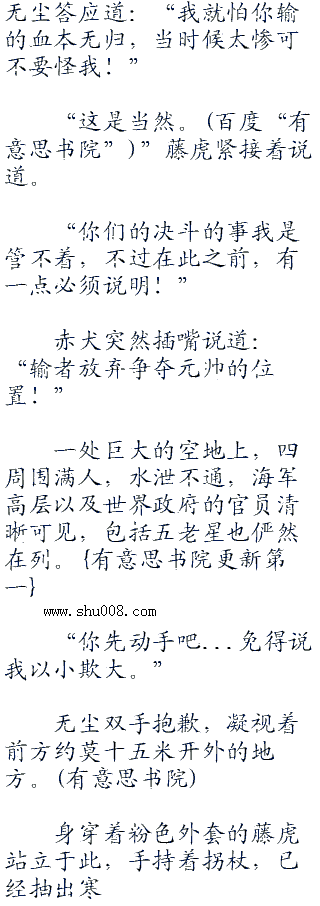 无尘答应道：“我就怕你输
的血本无归，当时候太惨可
不要怪我！”
“这是当然。(百度“有
意思书院”)”藤虎紧接着说
道。
“你们的决斗的事我是
管不着，不过在此之前，有
一点必须说明！”
赤犬突然插嘴说道：
“输者放弃争夺元帅的位
置！”
一处巨大的空地上，四
周围满人，水泄不通，海军
高层以及世界政府的官员清
晰可见，包括五老星也俨然
在列。{有意思书院更新第
一}
www.shu008.com
“你先动手吧...免得说
我以小欺大。”
无尘双手抱歉，凝视着
前方约莫十五米开外的地
方。(有意思书院)
身穿着粉色外套的藤虎
站立于此，手持着拐杖，已
经抽出寒